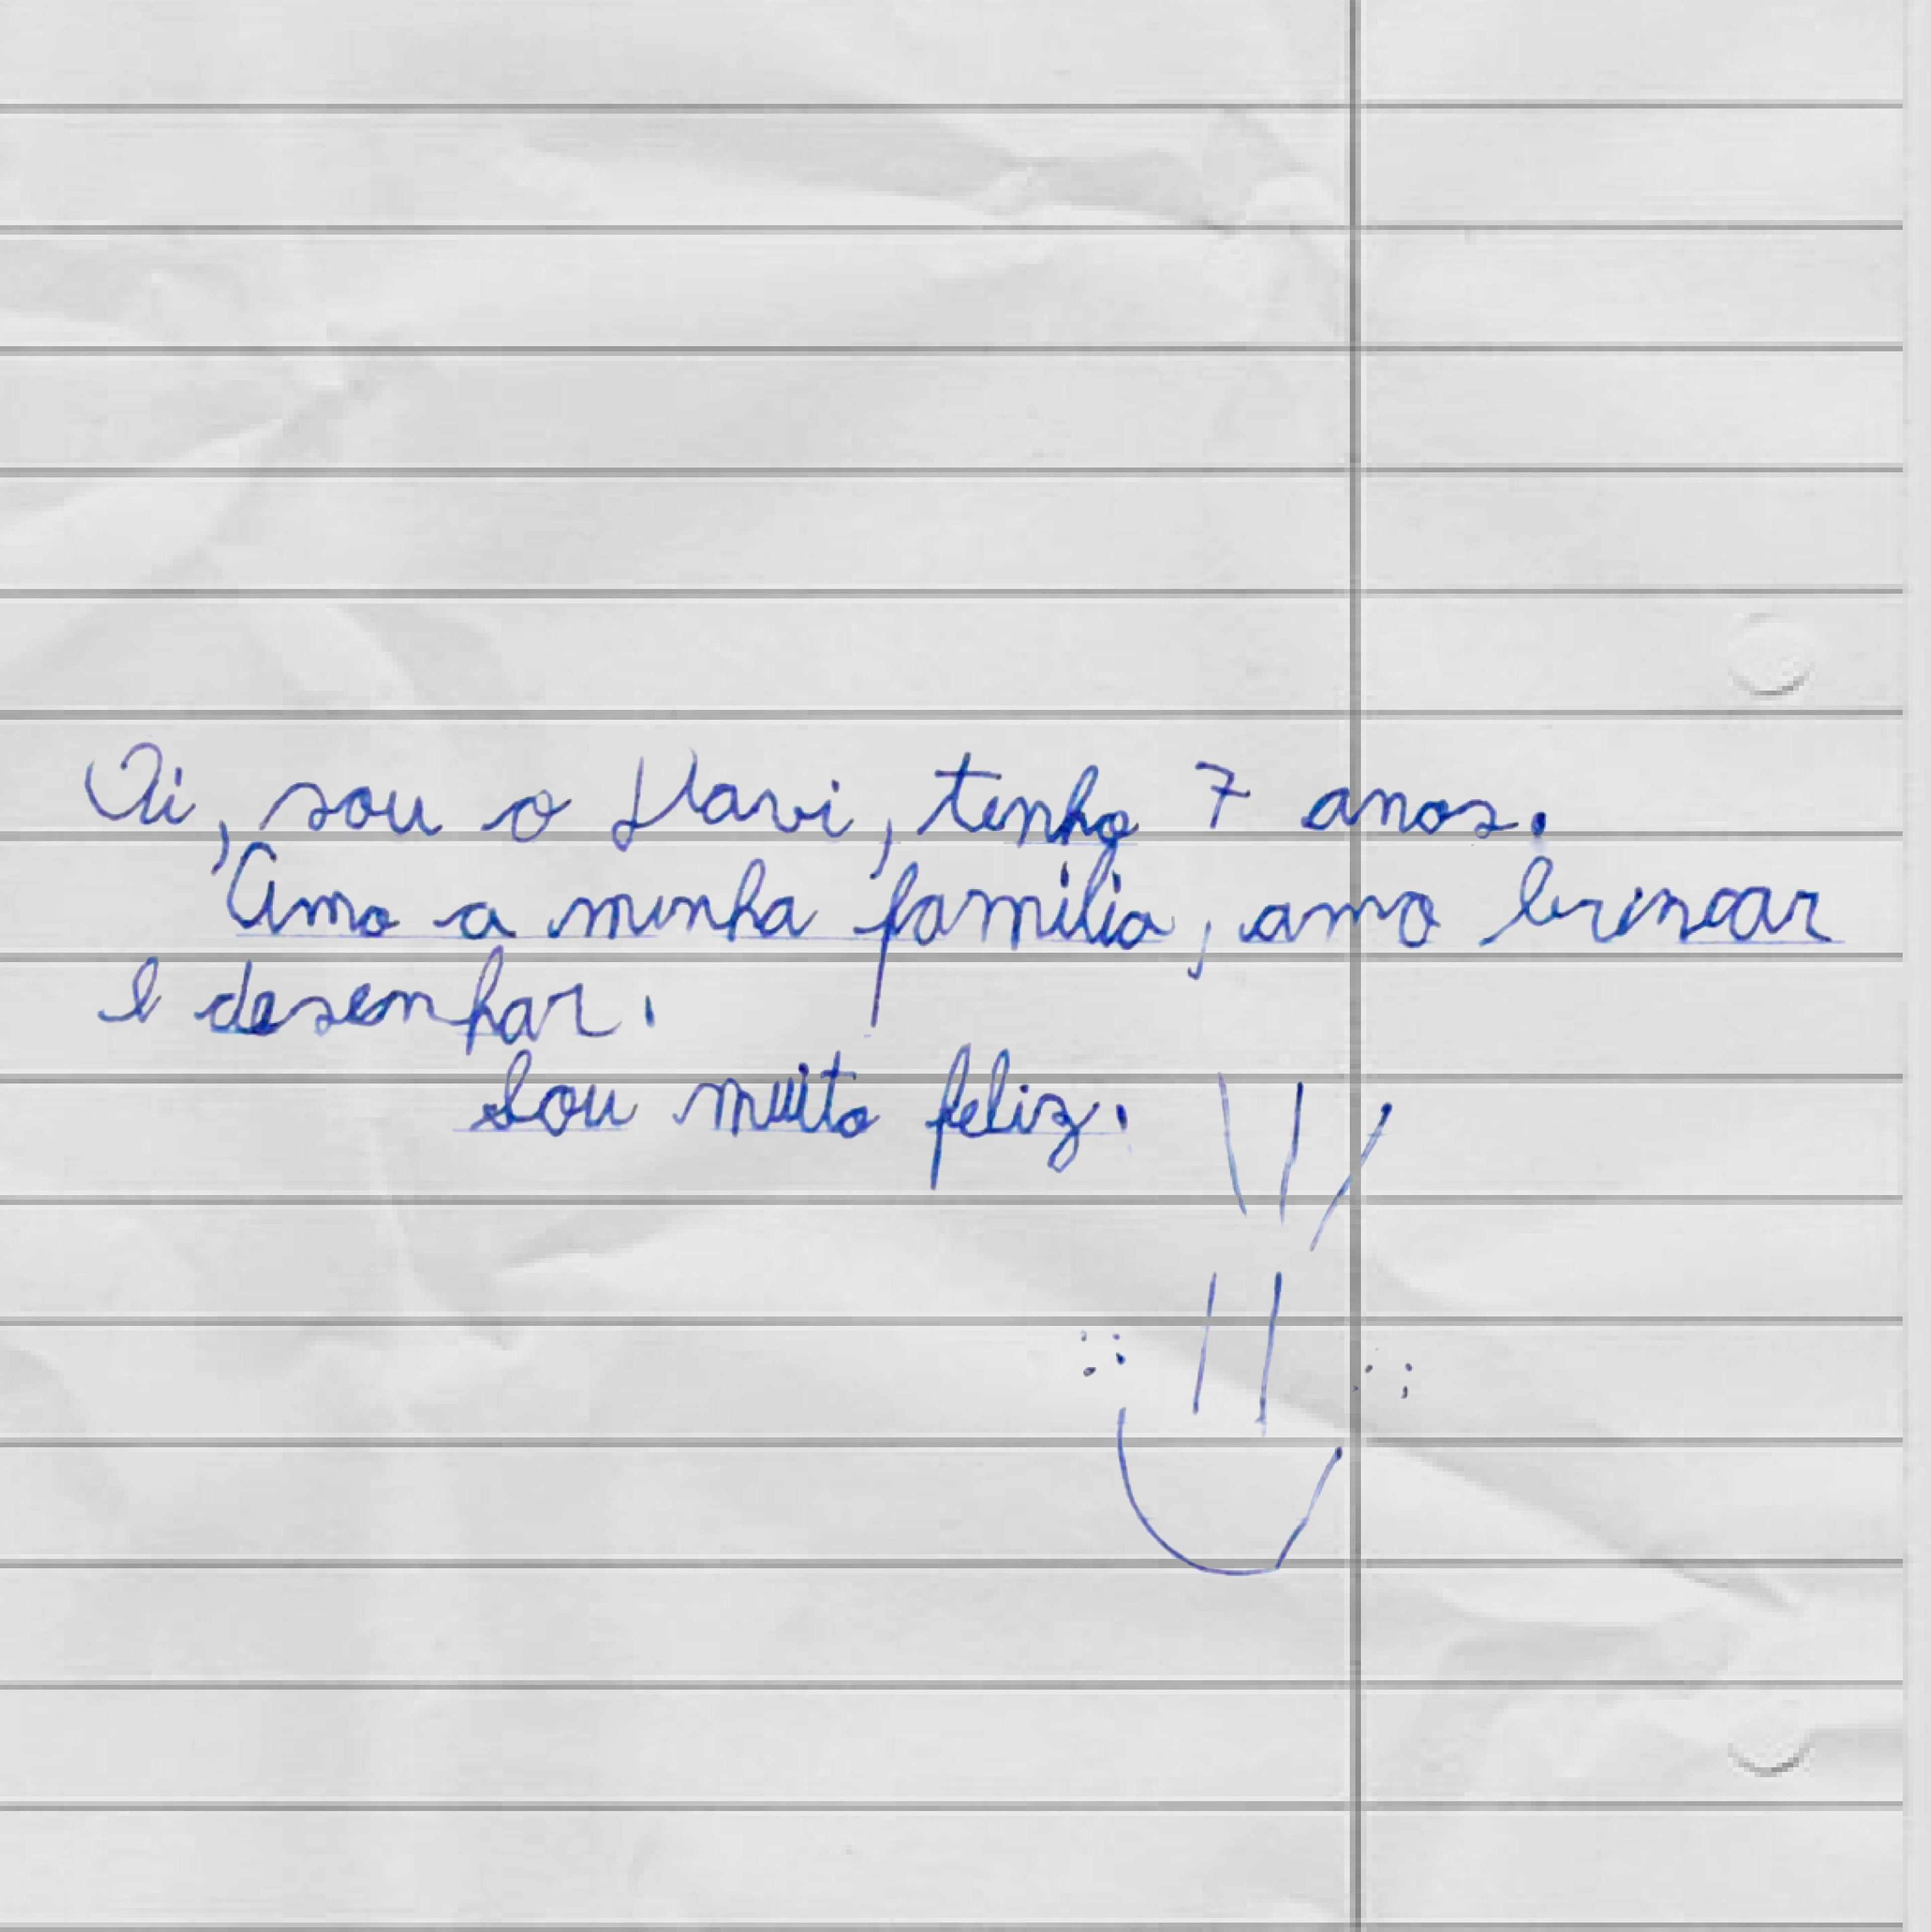 Oi, sou o Davi, tenho 7 anos.
Amo a minha familia, amo brincar
e desenhar.
Sou muito feliz.